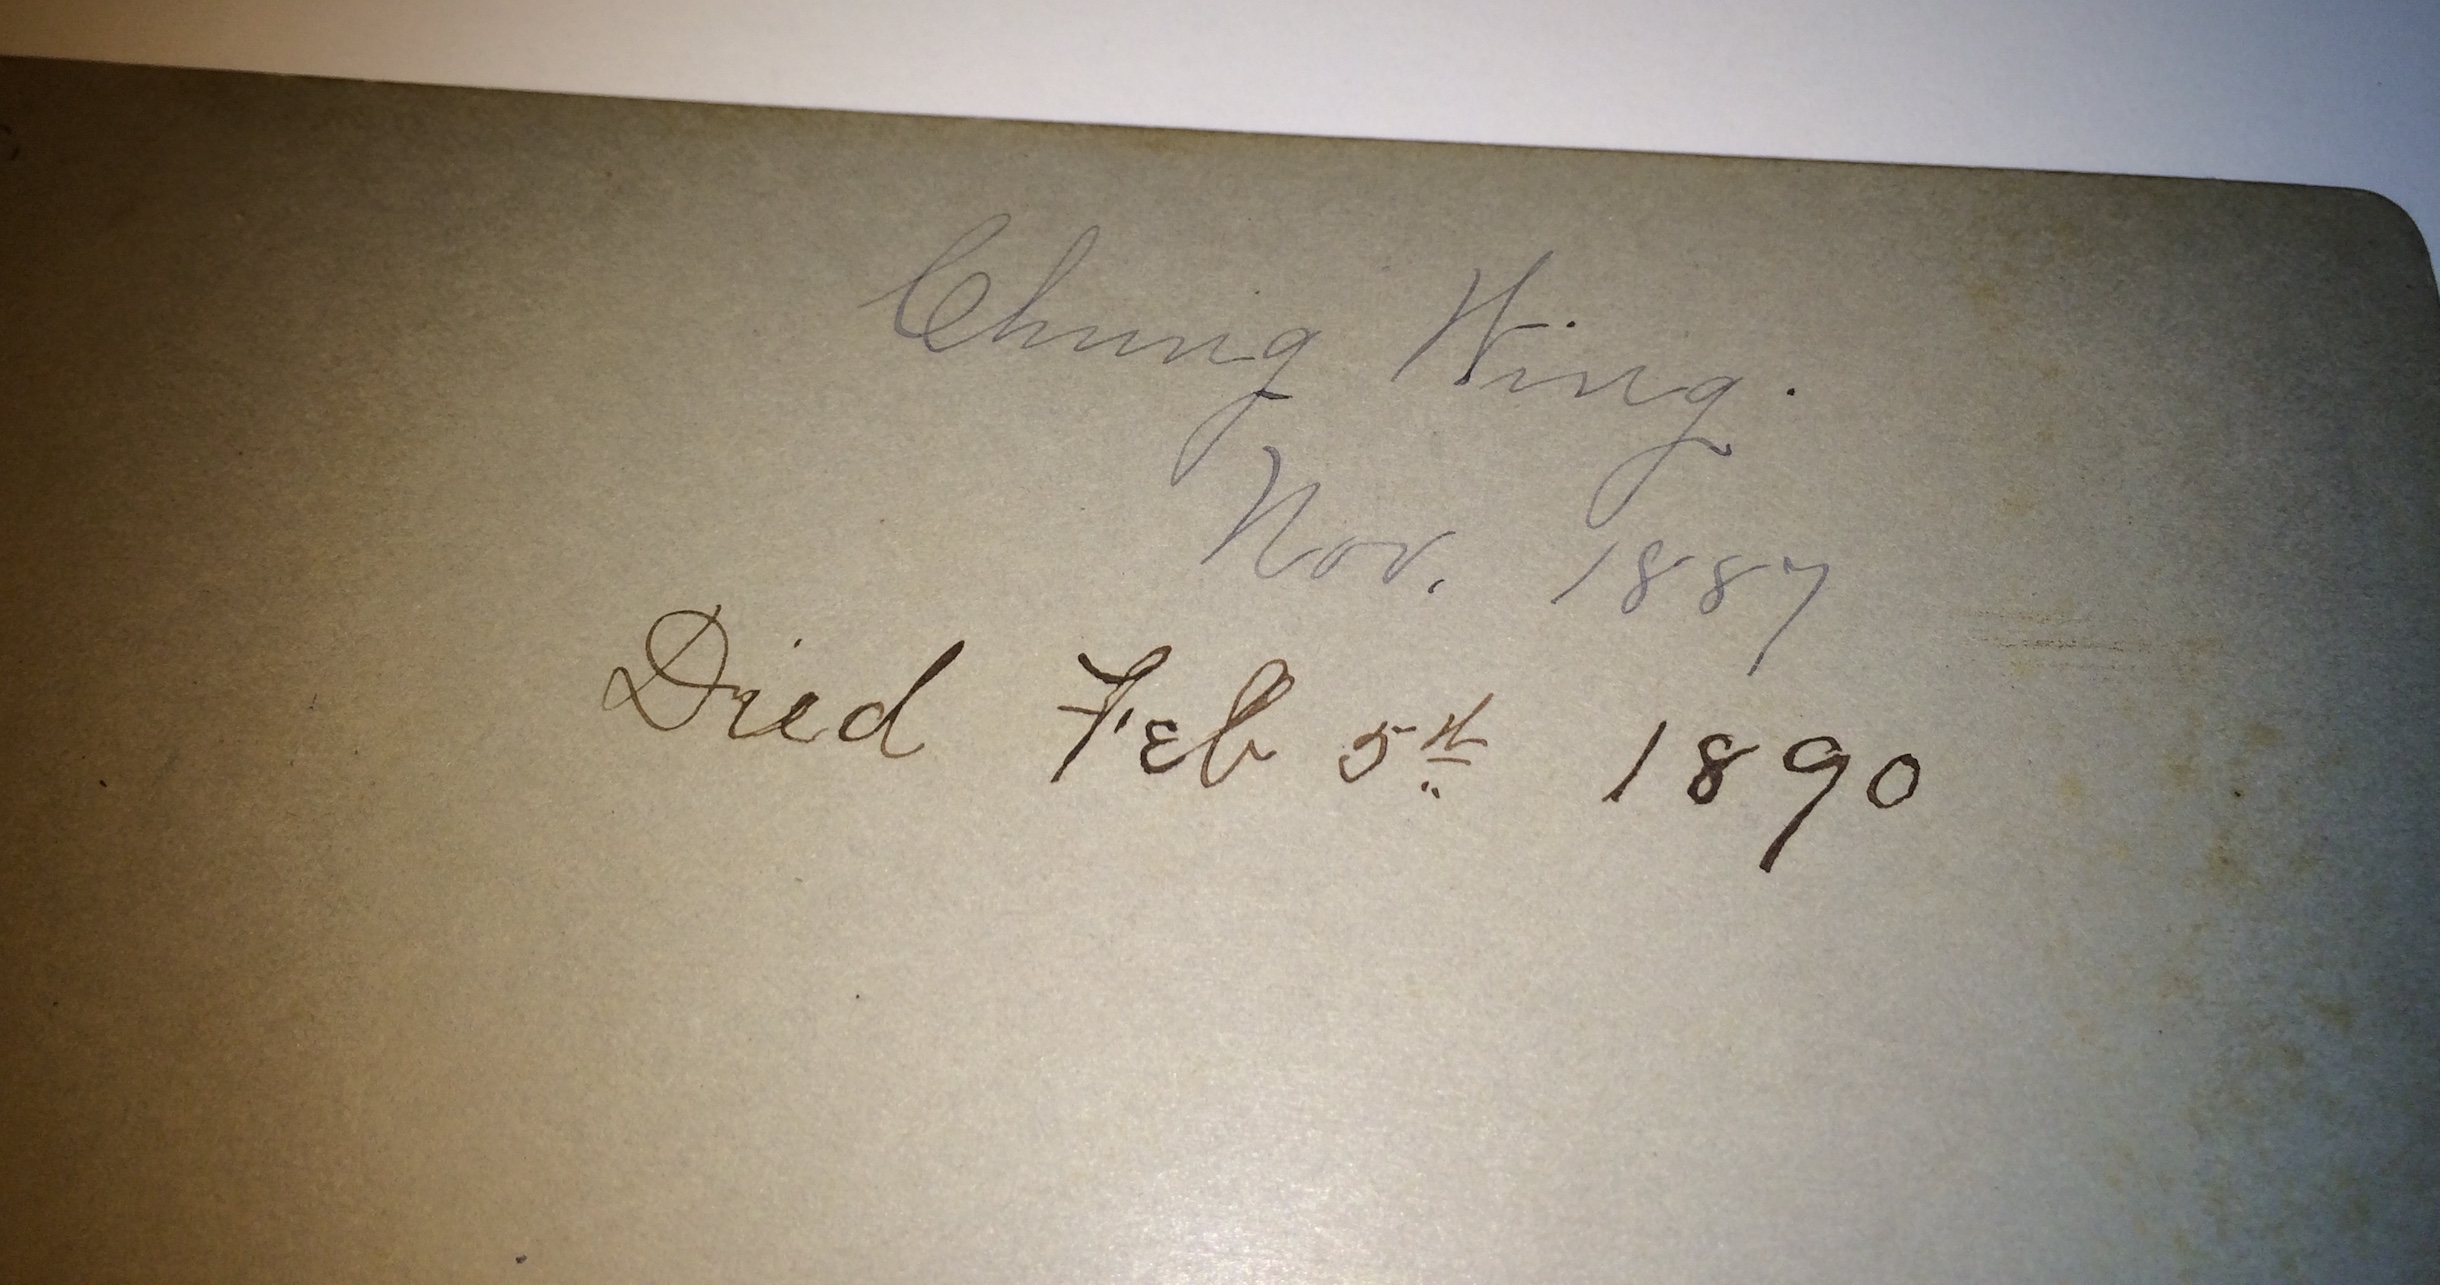 Chung Hing.
Nov. 1887
Died Feb 5th 1890